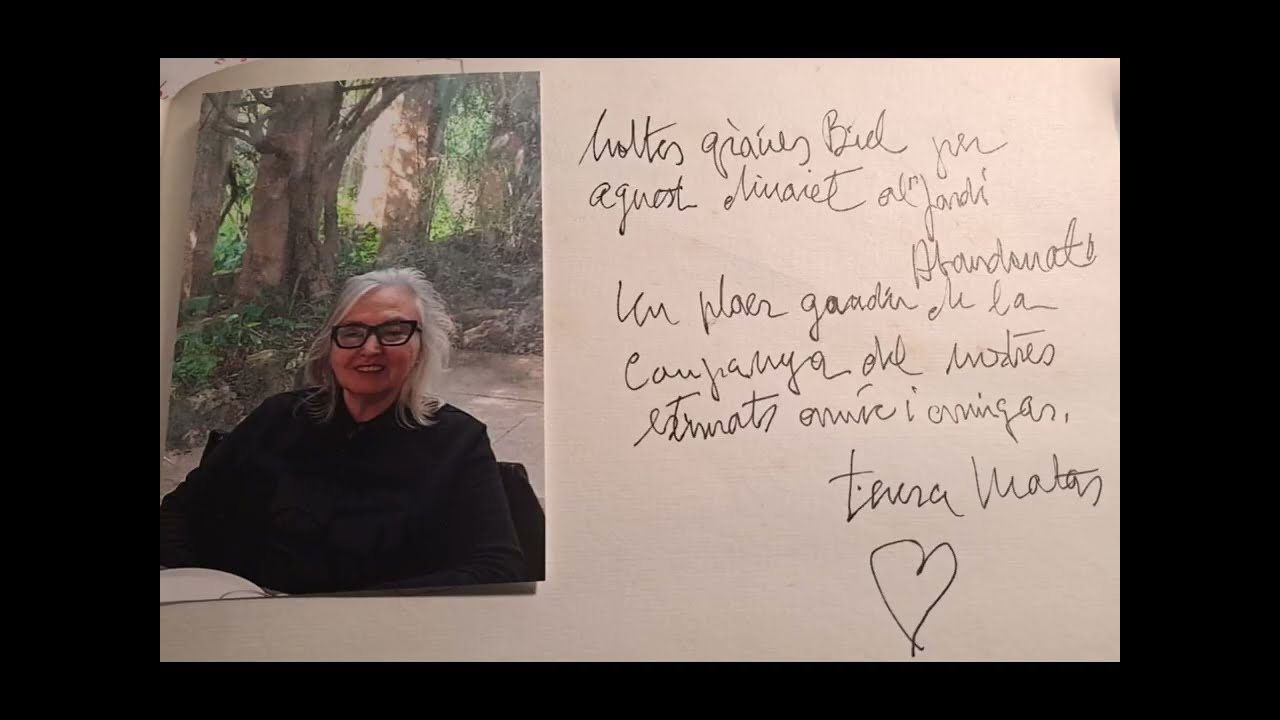 Moltes gràcies Biel per
aquest dinaret al "Jardí
Abandonat"
Un plaer gaudir de la
companyia dels nostres
estimats amics i amigas.
Teresa Matas